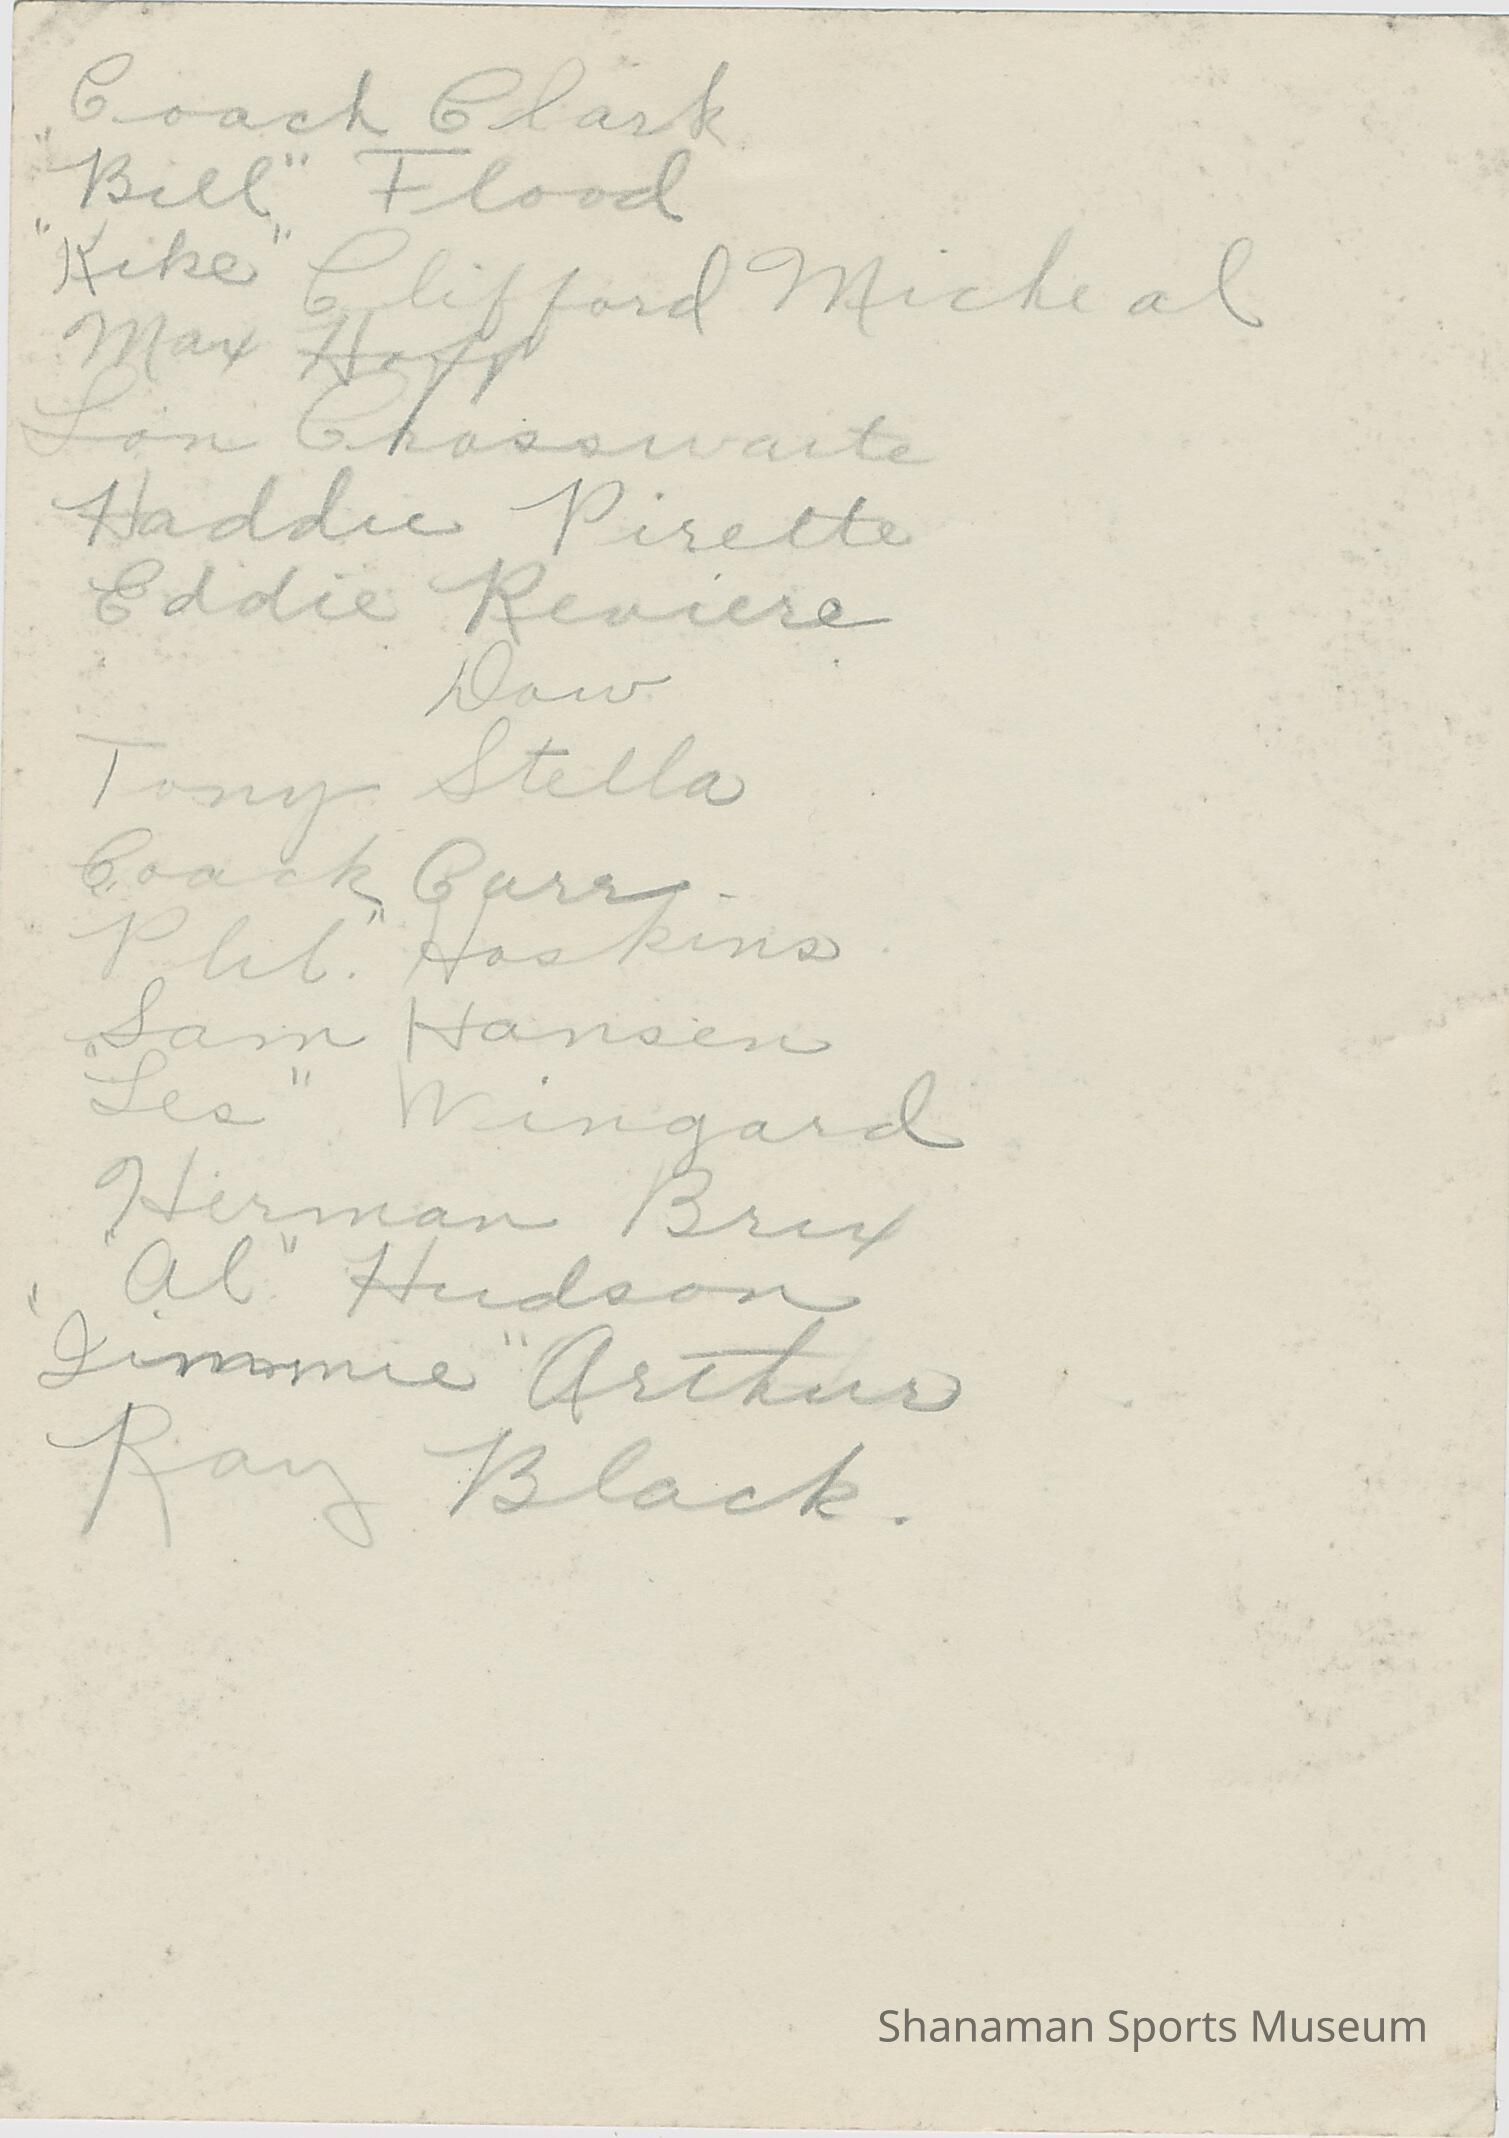 Coach Clark
"Bill" Flood
"Kike" Clifford Micheal
Max Hoff
Lon Chosswaite
Haddie Pirette
Eddie Reviere
Dow
Tony Stella
Coach Carr.
"Phil." Hoskins
Sam Hansen
"Les" Wingard
Herman Brix
"Al" Hudson
"Jimmie" Arthur
Ray Black.
Shanaman Sports Museum